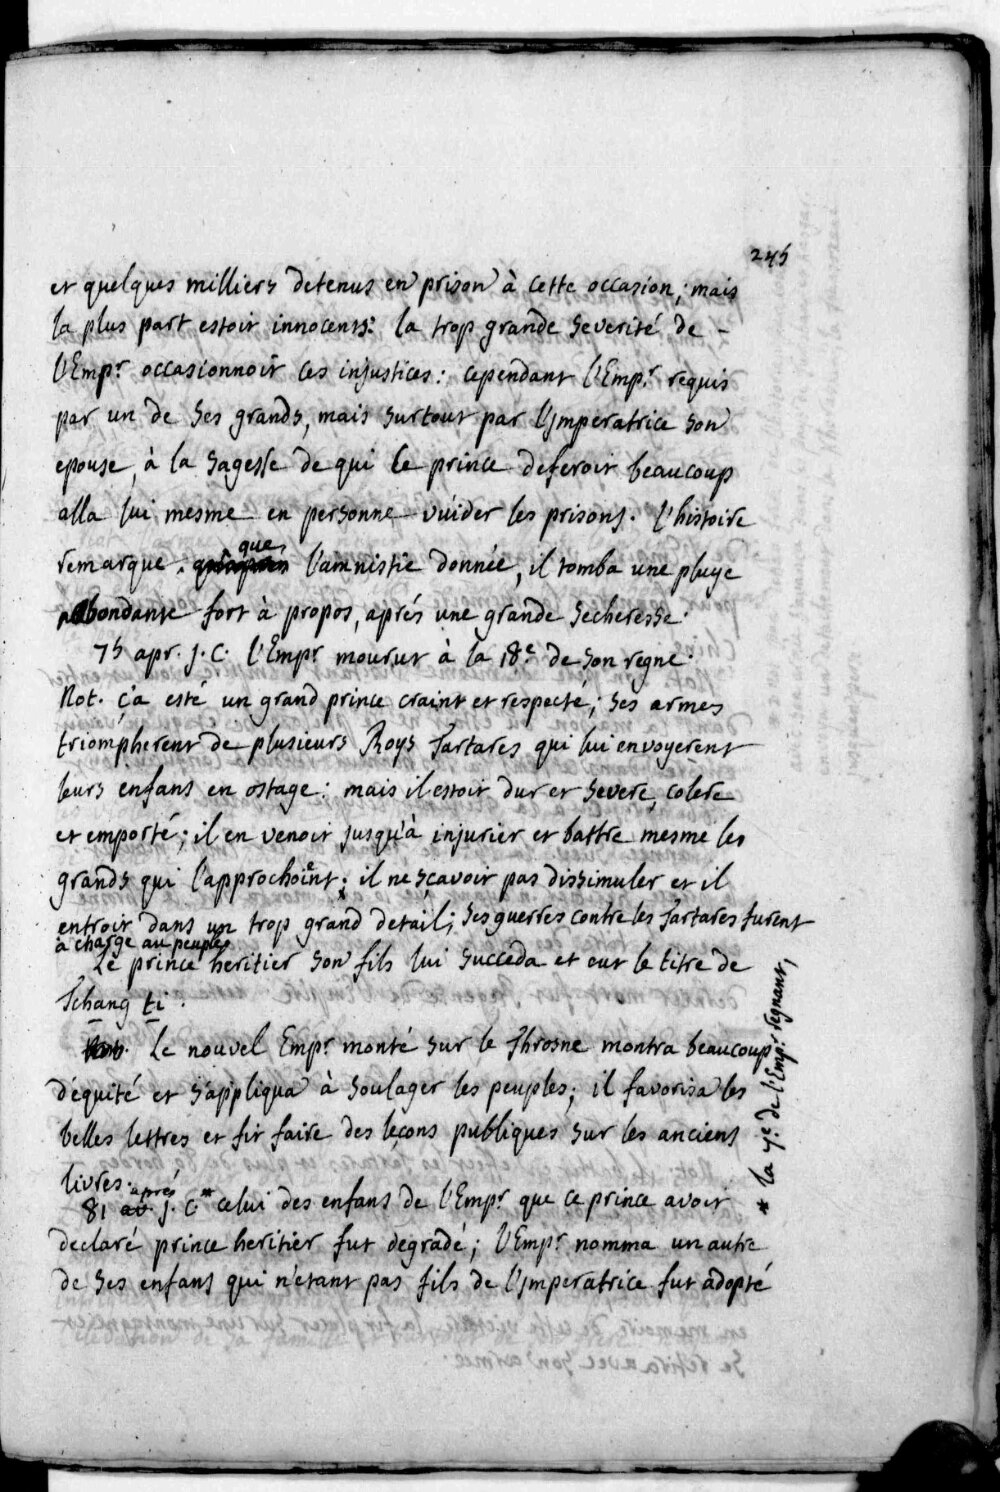 245
et quelques milliers detenus en prison à cette occasion; mais
la plus part estoit innocents: la trop grande severité de
l'Empr occasionnoit ces injustices: cependant l'Empr requis
par un de ses grands, mais surtout par l'jmperatrice son
epouse, à la sagesse de qui le prince deferoit beaucoup
alla lui mesme en personne vuider les prisons. l'histoire
remarque que l'amnistie donnée, il tomba une pluye
abondante fort à propos, aprés une grande secheresse.
75 apr. j. C. l'Empr mourut à la 18e de son regne.
Not. ç'a esté un grand prince craint et respecté; ses armes
triompherent de plusieurs Roys Tartares qui lui envoyerent
leurs enfans en ostage: mais il estoit dur et severe, colere
et emporté; il en venoit jusqu'à injurier et battre mesme les
grands qui l'approchoient; il ne sçavoit pas dissimuler et il
entroit dans un trop grand detail; ses guerres contre les Tartares furent
à charge au peuple
Le prince heritier son fils lui succeda et eut le titre de
Tchang ti.
Le nouvel Empr monté sur le Throsne montra beaucoup
d'equité et s'appliqua à soulager les peuples; il favorisa les
belles lettres et fit faire des leçons publiques sur les anciens
livres.
81 aprés j. C.* celui des enfans de l'Empr que ce prince avoit
declaré prince heritier fut degradé; l'Empr nomma un autre
de ses enfans qui n'etant pas fils de l'jmperatrice fut adopté
* la 7e de l'Empr regnant,